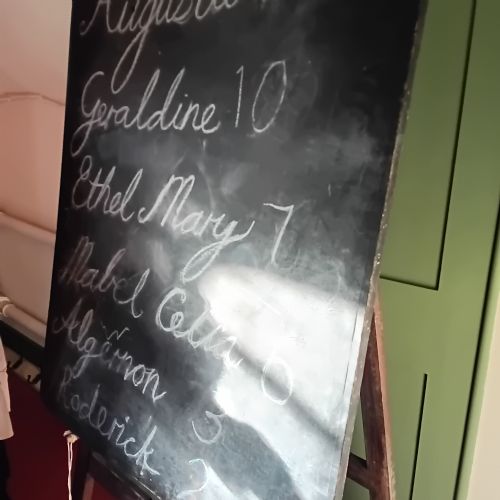 Geraldine 10
Ethel Mary 7
Mabel Celia 0
Algernon 3
Roderick 2